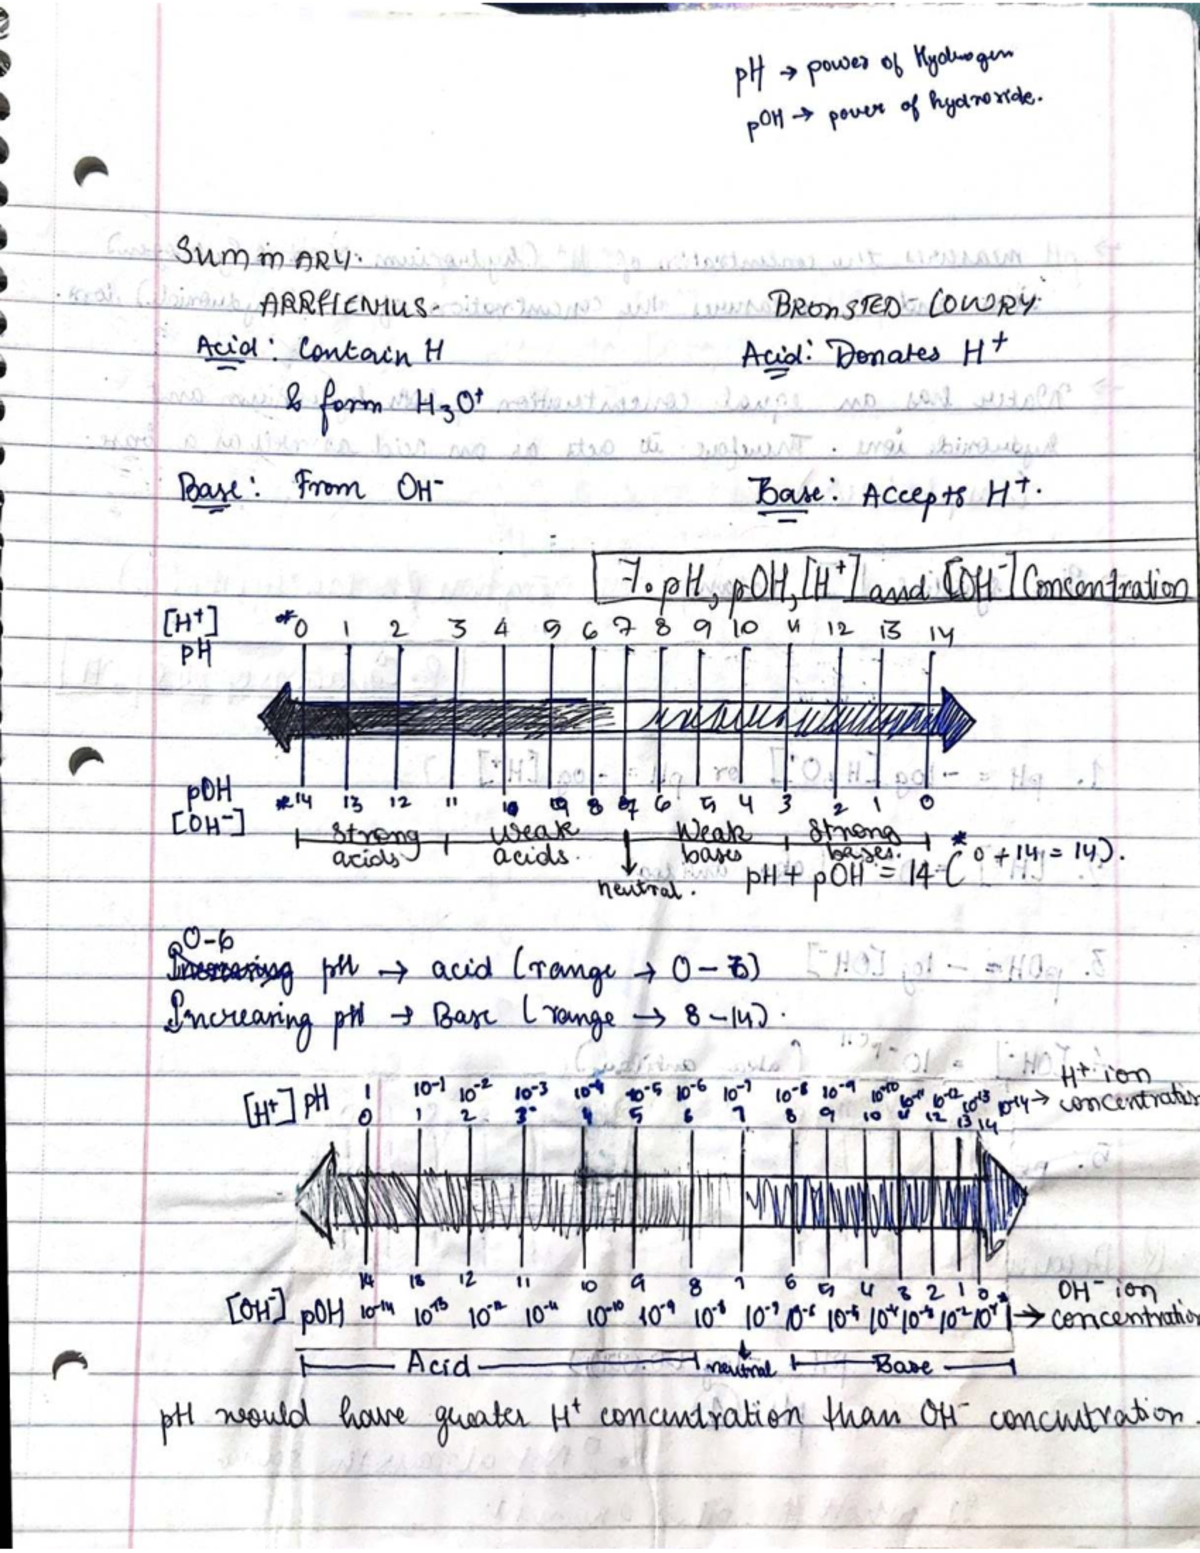 pH → power of Hydrogen
pOH → power of hydroxide.
SUMMARY.
ARRHENIUS. BRONSTED-LOWRY.
Acid: Contain H Acid: Donates H⁺
& form H₃O⁺
Base: From OH⁻ Base: Accepts H⁺.
7. pH, pOH, [H⁺] and [OH⁻] Concentration
[H⁺] *0 1 2 3 4 5 6 7 8 9 10 11 12 13 14
pH
pOH *14 13 12 11 10 9 8 7 6 5 4 3 2 1 0
[OH⁻] Strong acids. weak acids. Weak bases Strong bases.
neutral. pH + pOH = 14 (*0 + 14 = 14).
0-6
pH → acid (range → 0 – 6)
Increasing pH → Base (range → 8 – 14).
H⁺ ion concentration
[H⁺] 1 10⁻¹ 10⁻² 10⁻³ 10⁻⁴ 10⁻⁵ 10⁻⁶ 10⁻⁷ 10⁻⁸ 10⁻⁹ 10⁻¹⁰ 10⁻¹¹ 10⁻¹² 10⁻¹³ 10⁻¹⁴ →
pH 0 1 2 3 4 5 6 7 8 9 10 11 12 13 14
14 13 12 11 10 9 8 7 6 5 4 3 2 1 0
[OH⁻] pOH 10⁻¹⁴ 10⁻¹³ 10⁻¹² 10⁻¹¹ 10⁻¹⁰ 10⁻⁹ 10⁻⁸ 10⁻⁷ 10⁻⁶ 10⁻⁵ 10⁻⁴ 10⁻³ 10⁻² 10⁻¹ 1 → OH⁻ ion concentration
Acid neutral Base
pH would have greater H⁺ concentration than OH⁻ concentration.